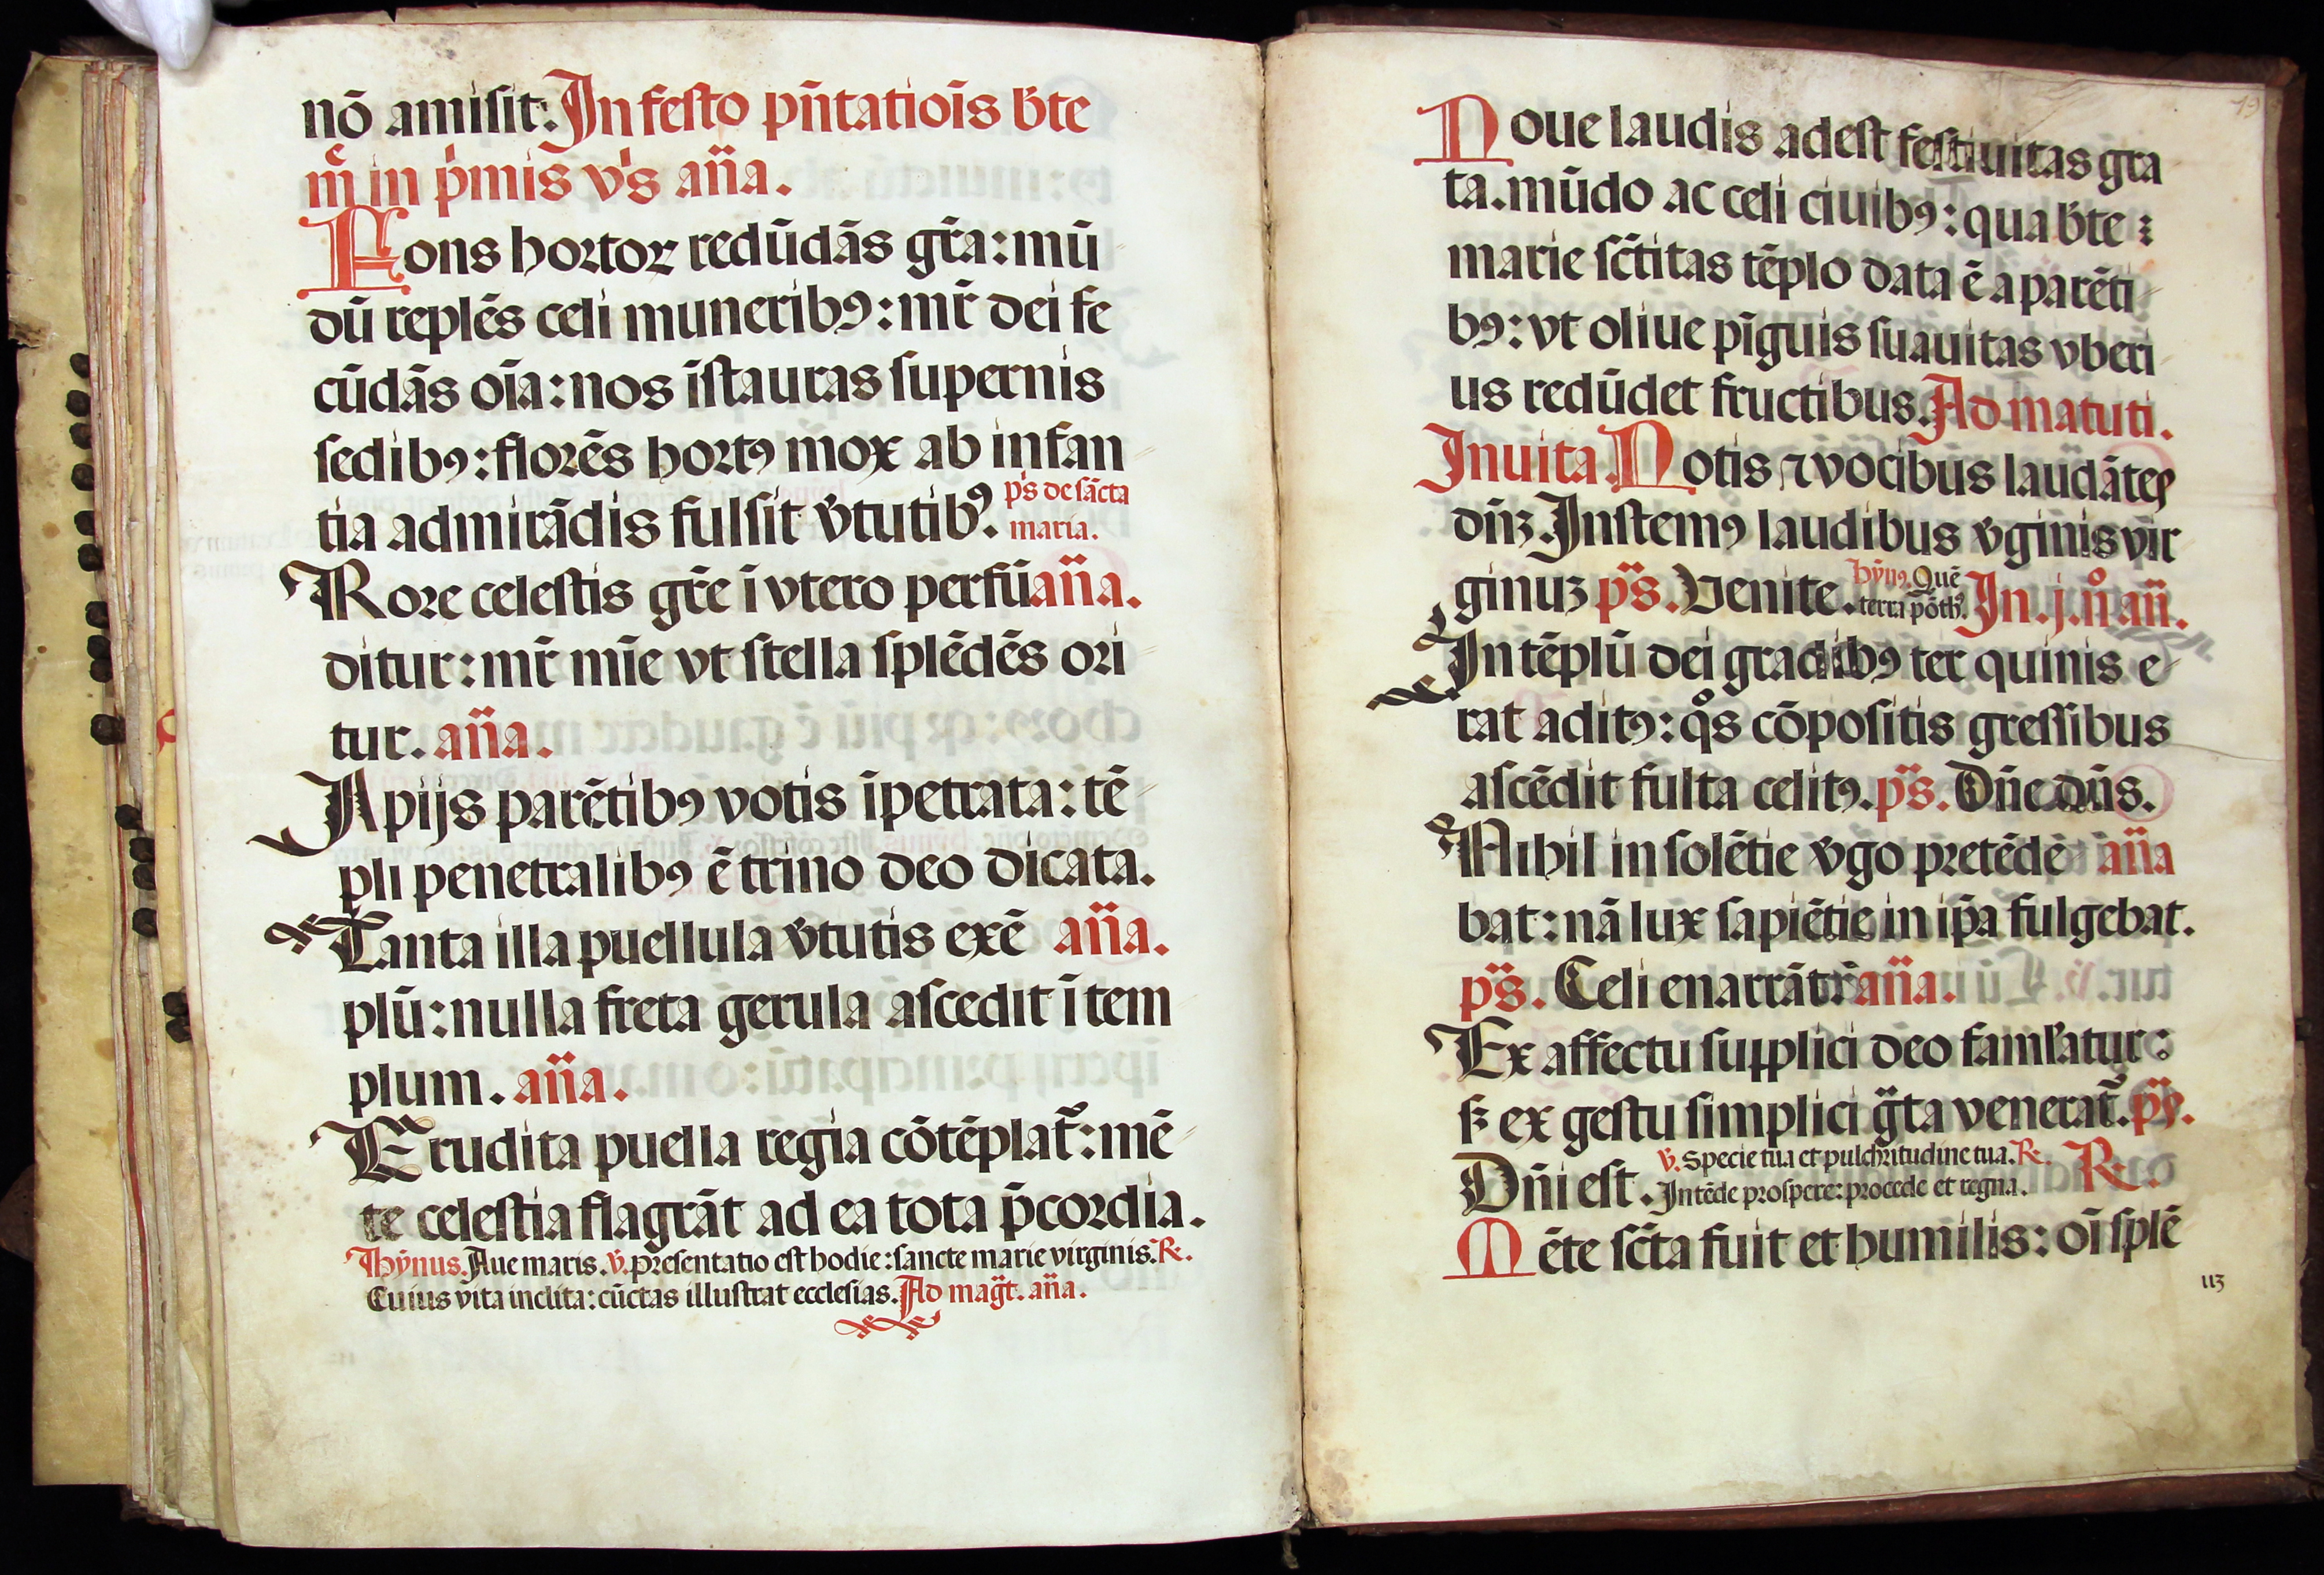 nō amisit: In festo pñtatiōis b̄te
m̄e in p̍mis vs̍ añа.
Fons hortoꝝ redūdās gr̄a: mū
dū replēs celi muneribꝰ: mr̄ dei fe
cūdās oīa: nos īstauras supernis
sedibꝰ: florēs hortꝰ mox ab infan
tia admirādis fulsit v̄tutibꝰ. ps̍ de sācta
maria.
Rore celestis gr̄e ī vtero perfū aña.
ditur: mr̄ mīe vt stella splēdēs ori
tur. aña.
A pijs parētibꝰ votis īpetrata: tē
pli penetralibꝰ ē trino deo dicata.
Tanta illa puellula v̄tutis exē aña.
plū: nulla freta gerula ascedit ī tem
plum. aña.
Erudita puella regia cōtēplat᷑: mē
te celestia flagrāt ad ea tota p̄cordia.
Hỹnus. Aue maris. ℣. presentatio est hodie: sancte marie virginis. ℞.
Cuius vita inclita: cūctas illustrat ecclesias. Ad mag̃t. aña.
Noue laudis adest festiuitas gra
ta. mūdo ac celi ciuibꝰ: qua b̄te :
marie sc̄titas tēplo data ē a parēti
bꝰ: vt oliue pīguis suauitas vberi
us redūdet fructibus. Ad matuti.
Inuita. Notis ⁊ vocibus laudātes
dn̄ꝫ. Instemꝰ laudibus v̄ginis vir
ginuꝫ ps̃. Venite. Hỹnꝰ. Quē
terra pōthꝰ. In. j. n̊ añ.
In tēplū dei gradibꝰ ter quinis e
rat aditꝰ: qͦs cōpositis gressibus
ascēdit fulta celitꝰ. ps̃. Dn̄e dn̄s.
Nihil in solētie v̄go pretēdē aña
bat: nā lux sapiētie in ip̄a fulgebat.
ps̃. Celi enarrāt: aña.
Ex affectu supplici deo famľatur:
sꝫ ex gestu simplici g̃ta venerat᷑. ps̃.
Dn̄i est. ℣. Specie tua et pulchritudine tua. ℞.
Intēde prospere: procede et regna. ℞.
Mēte sc̄ta fuit et humilis: oī splē
113